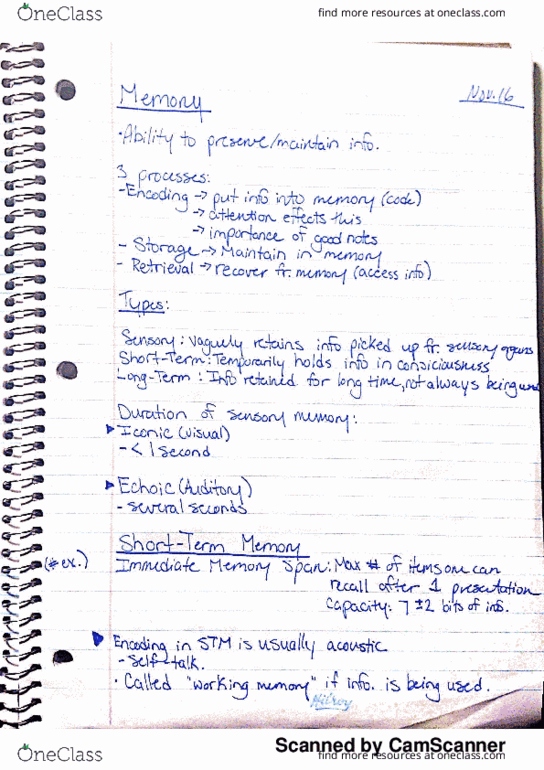 OneClass
find more resources at oneclass.com
Nov. 16
Memory
·Ability to preserve/maintain info.
3 processes:
-Encoding → put info into memory (code)
→ attention effects this
→ importance of good notes
- Storage → Maintain in memory
- Retrieval → recover fr. memory (access info)
Types:
Sensory: Vaguely retains info picked up fr. sensory organs
Short-Term: Temporarily holds info in consiciousness
Long-Term: Info retained for long time, not always being used
Duration of sensory memory:
▶ Iconic (visual)
- < 1 second
▶ Echoic (Auditory)
- several seconds
Short-Term Memory
(# ex.) Immediate Memory Span: Max # of items one can
recall after 1 presentation
Capacity: 7 ±2 bits of info.
▶ Encoding in STM is usually acoustic
- Self-talk.
· Called "working memory" if info. is being used.
Hilroy
Scanned by CamScanner
OneClass
find more resources at oneclass.com